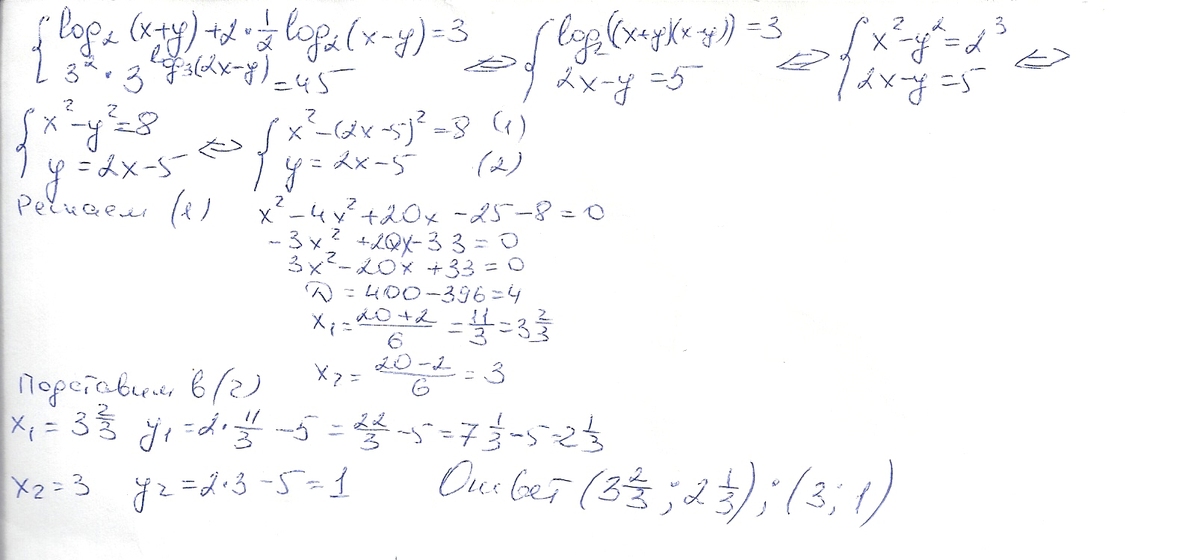 { log₂(x+y)+2·1/2 log₂(x-y)=3 ⇔ { log₂((x+y)(x-y))=3 ⇔ { x²-y²=2³ ⇔
3²·3^(log₃(2x-y))=45 2x-y=5 2x-y=5
{ x²-y²=8 ⇔ { x²-(2x-5)²=8 (1)
y=2x-5 y=2x-5 (2)
Решаем (1) x²-4x²+20x-25-8=0
-3x²+20x-33=0
3x²-20x+33=0
D=400-396=4
x₁=(20+2)/6=11/3=3 2/3
x₂=(20-2)/6=3
Подставим в (2)
x₁=3 2/3 y₁=2·11/3-5=22/3-5=7 1/3-5=2 1/3
x₂=3 y₂=2·3-5=1 Ответ (3 2/3; 2 1/3); (3; 1)